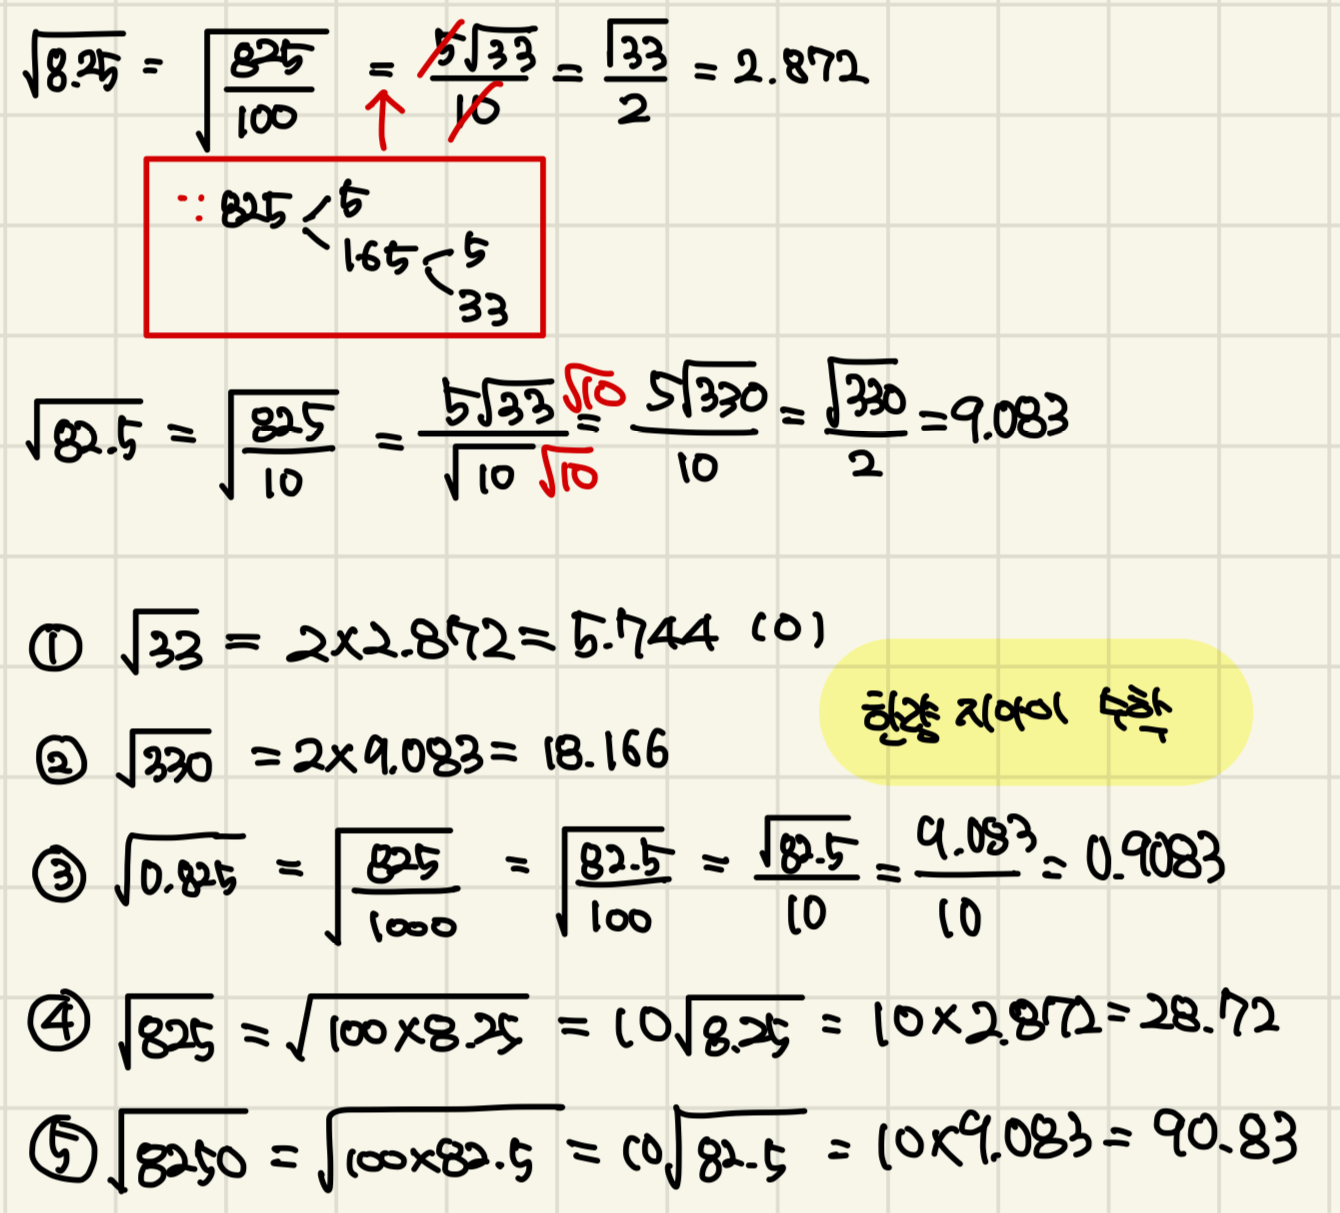 √8.25 = √(825/100) = 5√33/10 = √33/2 = 2.872
∵ 825 < 5
165 < 5
33
√82.5 = √(825/10) = 5√33 √10/√10 √10 = 5√330/10 = √330/2 = 9.083
① √33 = 2×2.872 = 5.744 (O)
한걍 지아이 수학
② √330 = 2×9.083 = 18.166
③ √0.825 = √(825/1000) = √(82.5/100) = √82.5/10 = 9.083/10 = 0.9083
④ √825 = √(100×8.25) = 10√8.25 = 10×2.872 = 28.72
⑤ √8250 = √(100×82.5) = 10√82.5 = 10×9.083 = 90.83